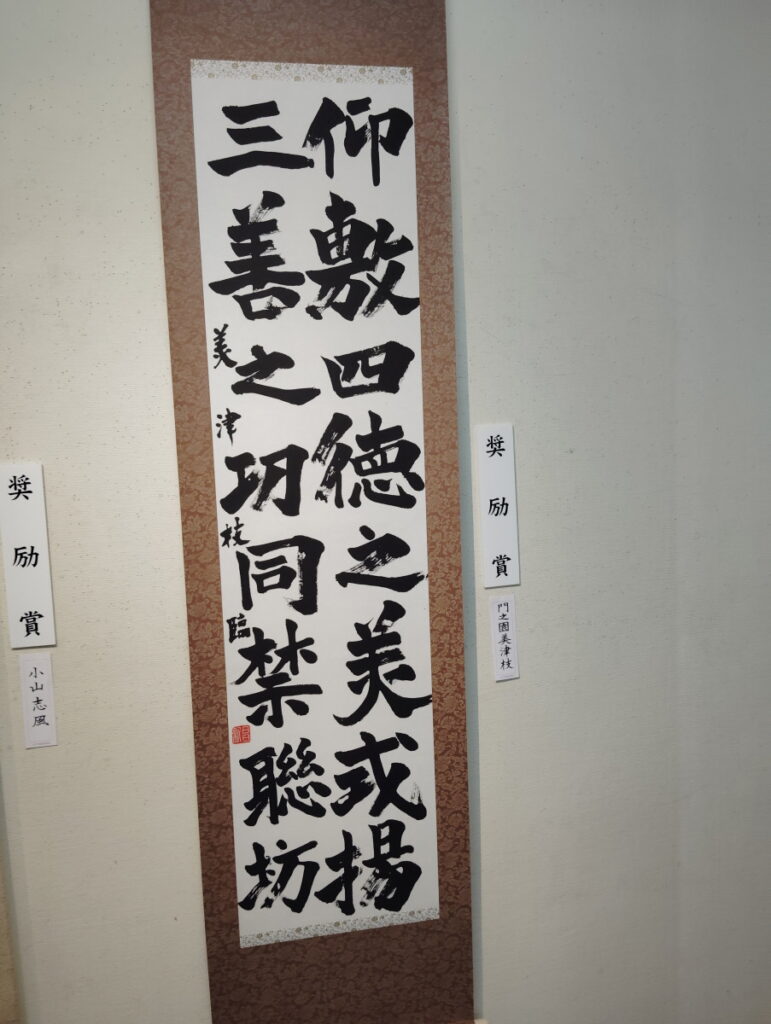 仰敷四徳之美或揚
三善之功同禁聯坊
美津枝臨
奨励賞
門之園美津枝
奨励賞
小山志風